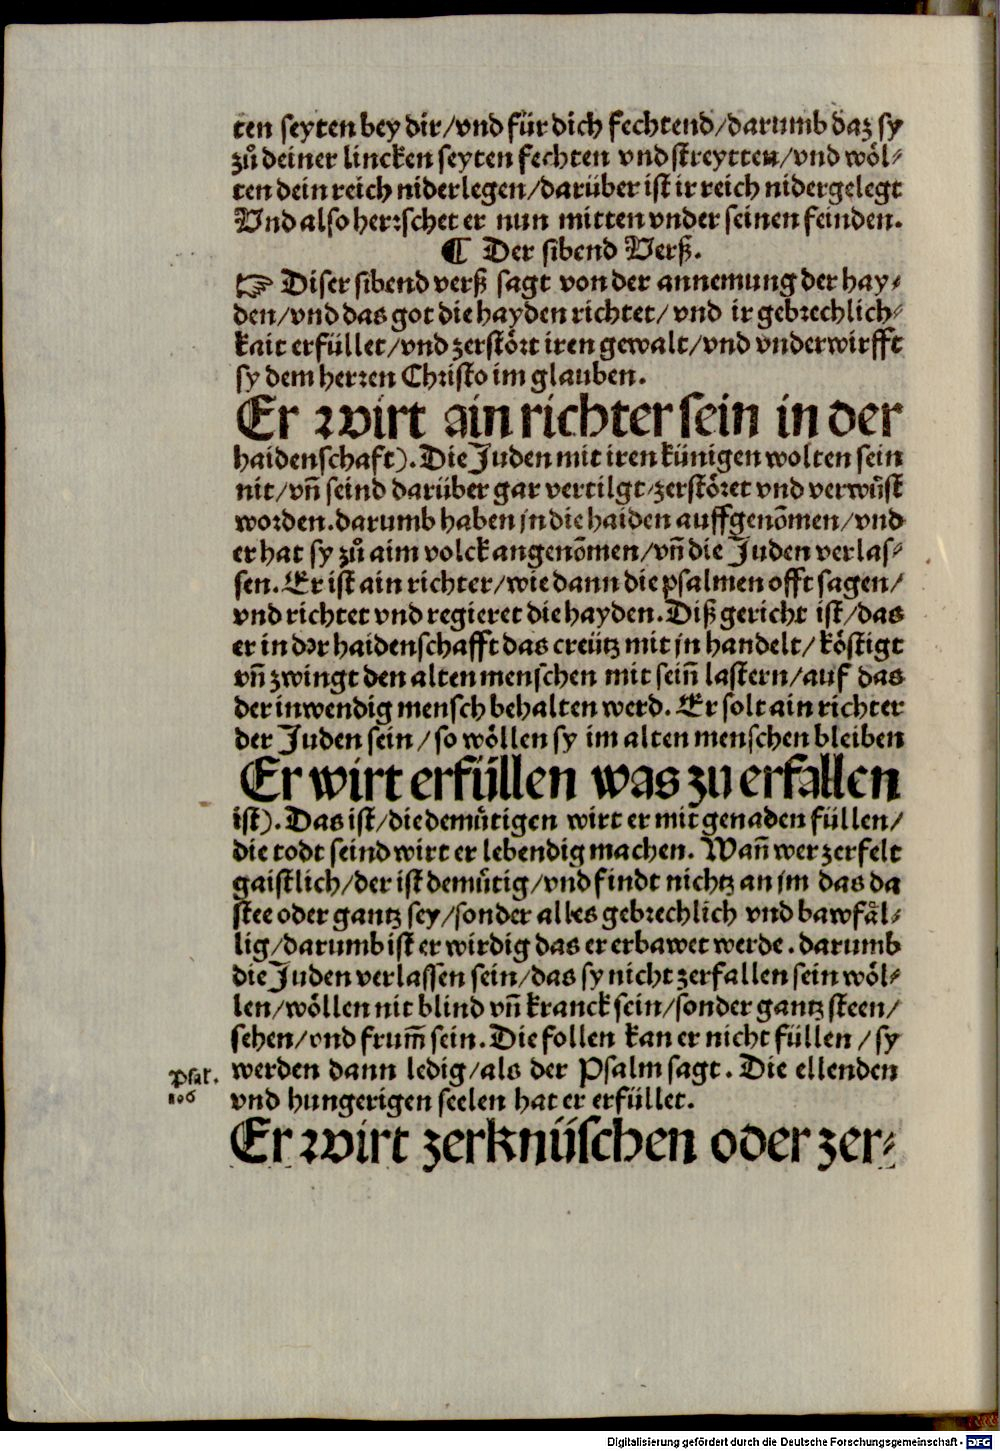 ten seyten bey dir/vnd für dich fechtend/darumb daz sy
zů deiner lincken seyten fechten vnd streytten/vnd wöl-
ten dein reich niderlegen/darüber ist ir reich nidergelegt
Vnd also herrschet er nun mitten vnder seinen feinden.
¶ Der sibend Verß.
☞ Diser sibend verß sagt von der annemung der hay-
den/vnd das got die hayden richtet/ vnd ir gebrechlich-
kait erfüllet/vnd zerstört iren gewalt/vnd vnderwirfft
sy dem herren Christo im glauben.
Er wirt ain richter sein in der
haidenschaft). Die Juden mit iren künigen wolten sein
nit/vñ seind darüber gar vertilgt/zerstöret vnd verwůst
worden.darumb haben jn die haiden auffgenõmen/vnd
er hat sy zů aim volck angenõmen/vñ die Juden verlas-
sen. Er ist ain richter/wie dann die psalmen offt sagen/
vnd richtet vnd regieret die hayden. Diß gericht ist/das
er in der haidenschafft das creütz mit jn handelt/ köstigt
vñ zwingt den alten menschen mit sein̄ lastern/auf das
der inwendig mensch behalten werd. Er solt ain richter
der Juden sein/so wöllen sy im alten menschen bleiben
Er wirt erfüllen was zu erfallen
ist). Das ist/die demůtigen wirt er mit genaden füllen/
die todt seind wirt er lebendig machen. Wañ wer zerfelt
gaistlich/der ist demůtig/vnd findt nichtz an jm das da
stee oder gantz sey/sonder alles gebrechlich vnd bawfäl-
lig/darumb ist er wirdig das er erbawet werde. darumb
die Juden verlassen sein/das sy nicht zerfallen sein wöl-
len/wöllen nit blind vñ kranck sein/sonder gantz steen/
sehen/vnd frum̄ sein. Die follen kan er nicht füllen/sy
werden dann ledig/als der Psalm sagt. Die ellenden
Psal.
106
vnd hungerigen seelen hat er erfüllet.
Er wirt zerknüschen oder zer-
Digitalisierung gefördert durch die Deutsche Forschungsgemeinschaft - DFG